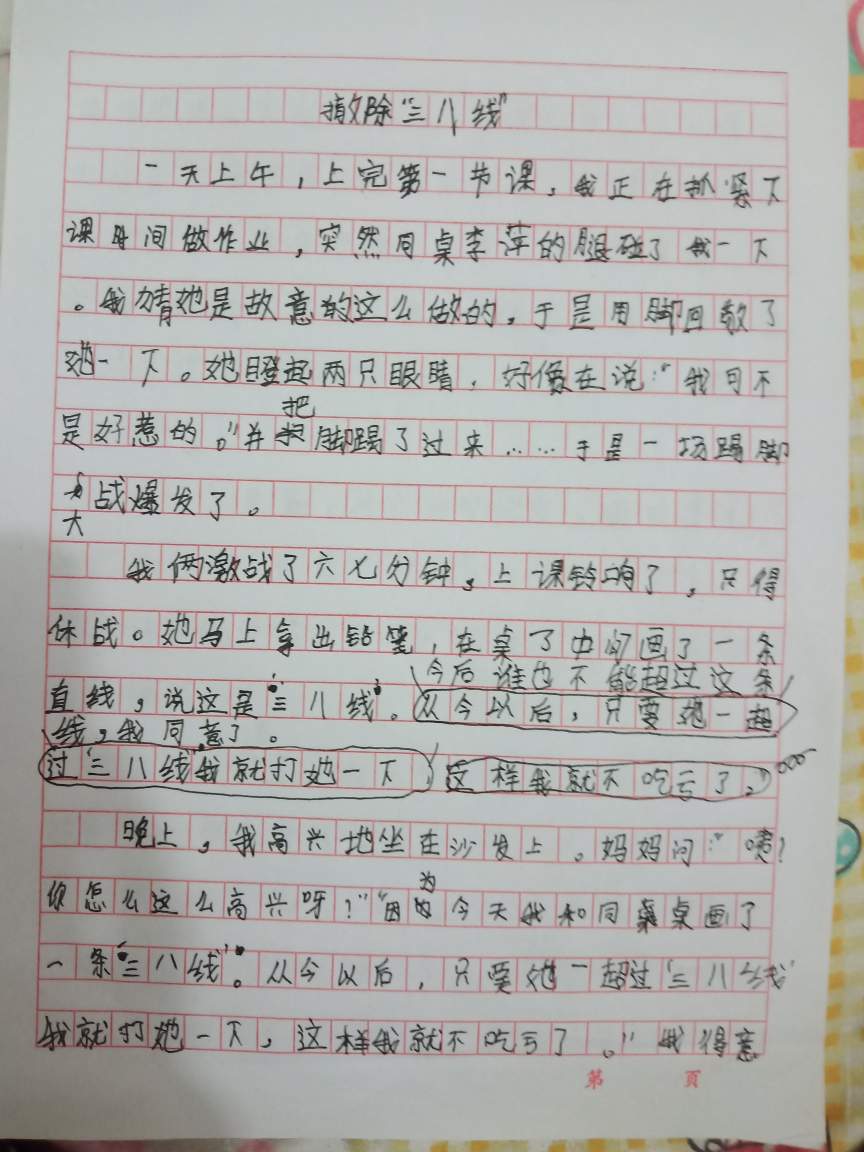 撤除“三八线”
一天上午，上完第一节课，我正在抓紧下
课时间做作业，突然同桌李萍的腿碰了我一下
。我猜她是故意的这么做的，于是用脚回敬了
她一下。她瞪起两只眼睛，好像在说：“我可不
把
是好惹的。”并脚踢了过来……于是一场踢脚
大战爆发了。
我俩激战了六七分钟，上课铃响了，只得
休战。她马上拿出铅笔，在桌子中间画了一条
今后谁也不能超过这条
直线，说这是“三八线”。从今以后，只要她一超
线，我同意了。
过“三八线”我就打她一下，这样我就不吃亏了。
晚上，我高兴地坐在沙发上。妈妈问：“咦？
为
你怎么这么高兴呀！”“因今天我和同桌画了
一条“三八线”。从今以后，只要她一超过“三八线”
我就打她一下，这样我就不吃亏了。”我得意
第 页